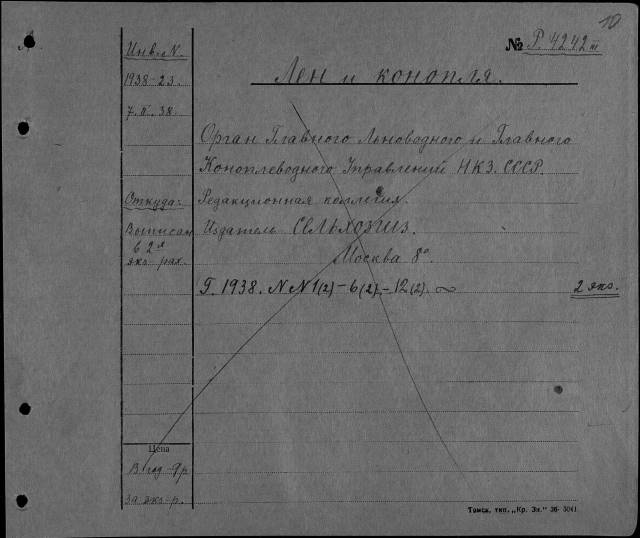 10
№ Р. 4242 III
Инв. N.
1938-23.
7. II. 38.
Лен и конопля.
Орган Главного Льноводного и Главного
Коноплеводного Управлений НКЗ. СССР.
Откуда:
Редакционная коллегия.
Выписан
в 2х
экз. рах.
Издатель Сельхозгиз.
Москва 8°.
Г. 1938. N N 1(2) – 6(2) – 12(2).
2 экз.
Цена
В год 9 р
За экз- р.
Томск, тип. „Кр. Зн.“ 36- 5041